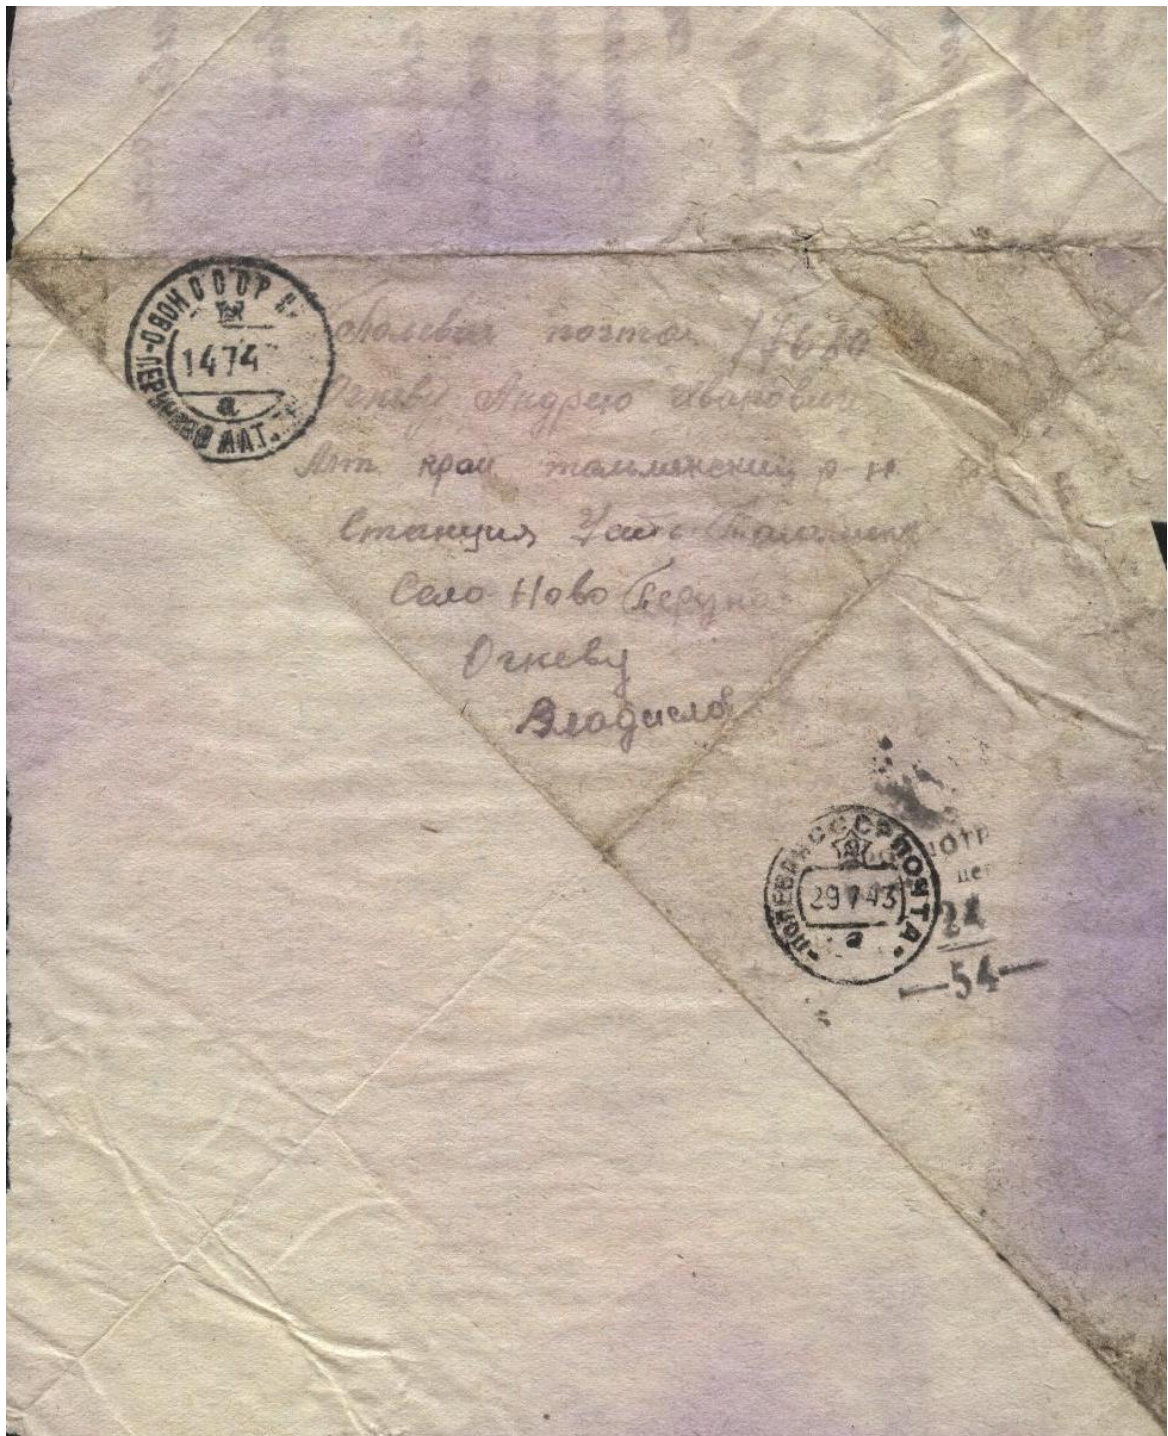 СССР
НОВО-ПЕРУНОВО АЛТ.
1474
а
Полевая почта 77680
Огневу Андрею Ивановичу
Алт край тальменский р-н
Станция Усть Тальменка
Село Ново Перуно
Огневу
Владислав
СССР
ПОЛЕВАЯ ПОЧТА
29 7 43
а
24
54